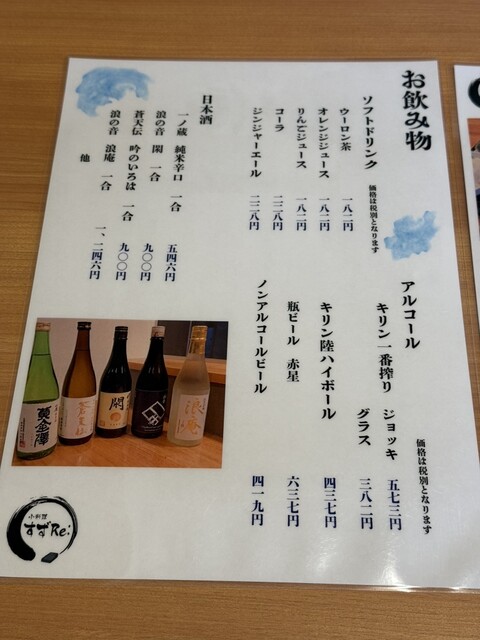 お飲み物
ソフトドリンク 価格は税別となります
ウーロン茶 一八二円
オレンジジュース 一八二円
りんごジュース 一八二円
コーラ 二二八円
ジンジャーエール 二二八円
日本酒
一ノ蔵 純米辛口 一合 五四六円
浪の音 閑 一合 九〇〇円
蒼天伝 吟のいろは 一合 九〇〇円
浪の音 浪庵 一合 一、二四六円
他
アルコール 価格は税別となります
キリン一番搾り ジョッキ 五七三円
グラス 三八二円
キリン陸ハイボール 四三七円
瓶ビール 赤星 六三七円
ノンアルコールビール 四一九円
黄金澤
閑
浪庵
小料理
すずRe: